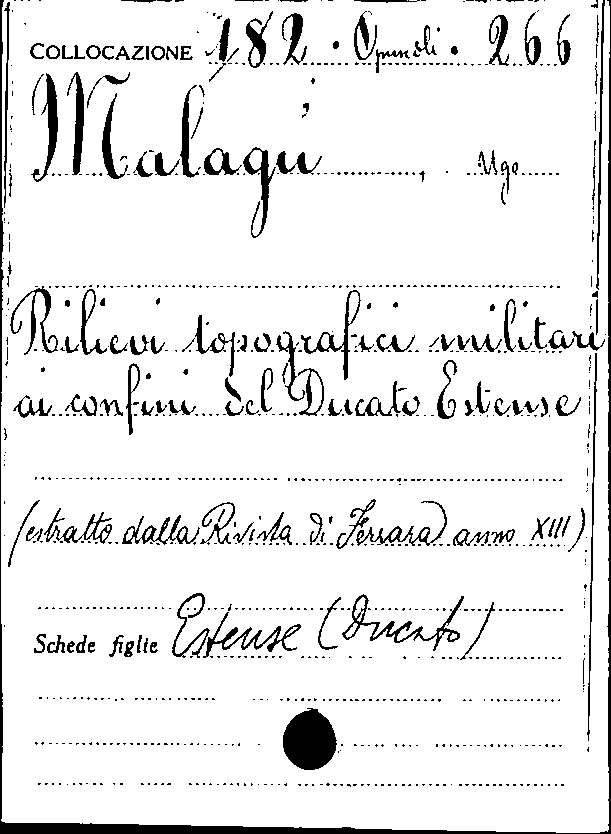 COLLOCAZIONE 182 · Opuscoli · 266
Malagù, Ugo
Rilievi topografici militari
ai confini del Ducato Estense
(estratto dalla Rivista di Ferrara) anno XIII)
Schede figlie Estense (Ducato)